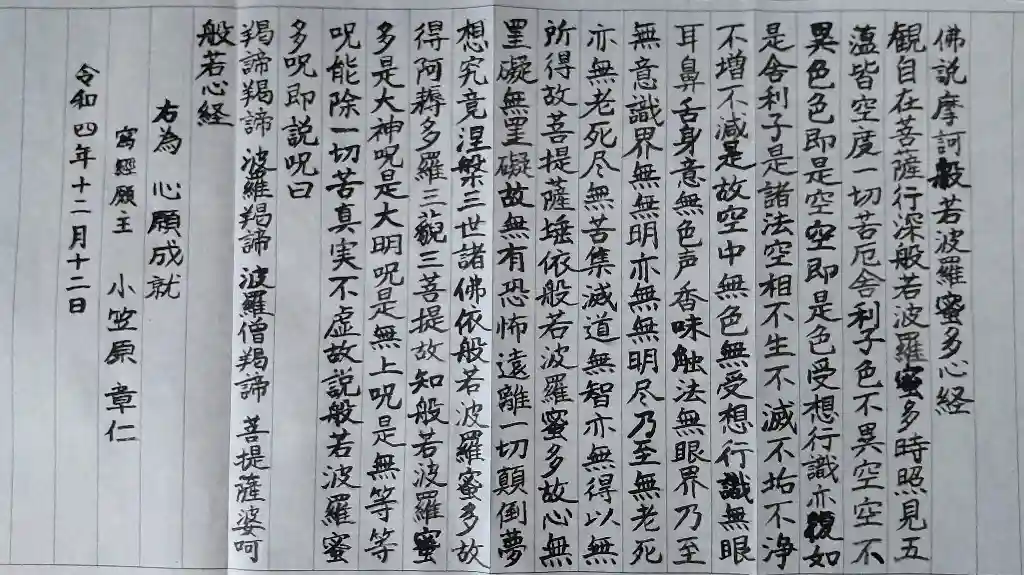 佛説摩訶般若波羅蜜多心経
観自在菩薩行深般若波羅蜜多時照見五
薀皆空度一切苦厄舎利子色不異空空不
異色色即是空空即是色受想行識亦復如
是舎利子是諸法空相不生不滅不垢不浄
不増不減是故空中無色無受想行識無眼
耳鼻舌身意無色声香味触法無眼界乃至
無意識界無無明亦無無明尽乃至無老死
亦無老死尽無苦集滅道無智亦無得以無
所得故菩提薩埵依般若波羅蜜多故心無
罣礙無罣礙故無有恐怖遠離一切顛倒夢
想究竟涅槃三世諸佛依般若波羅蜜多故
得阿耨多羅三藐三菩提故知般若波羅蜜
多是大神呪是大明呪是無上呪是無等等
呪能除一切苦真実不虚故説般若波羅蜜
多呪即説呪曰
羯諦羯諦 波羅羯諦 波羅僧羯諦 菩提薩婆呵
般若心経
右為 心願成就
写經願主 小笠原章仁
令和四年十二月十二日